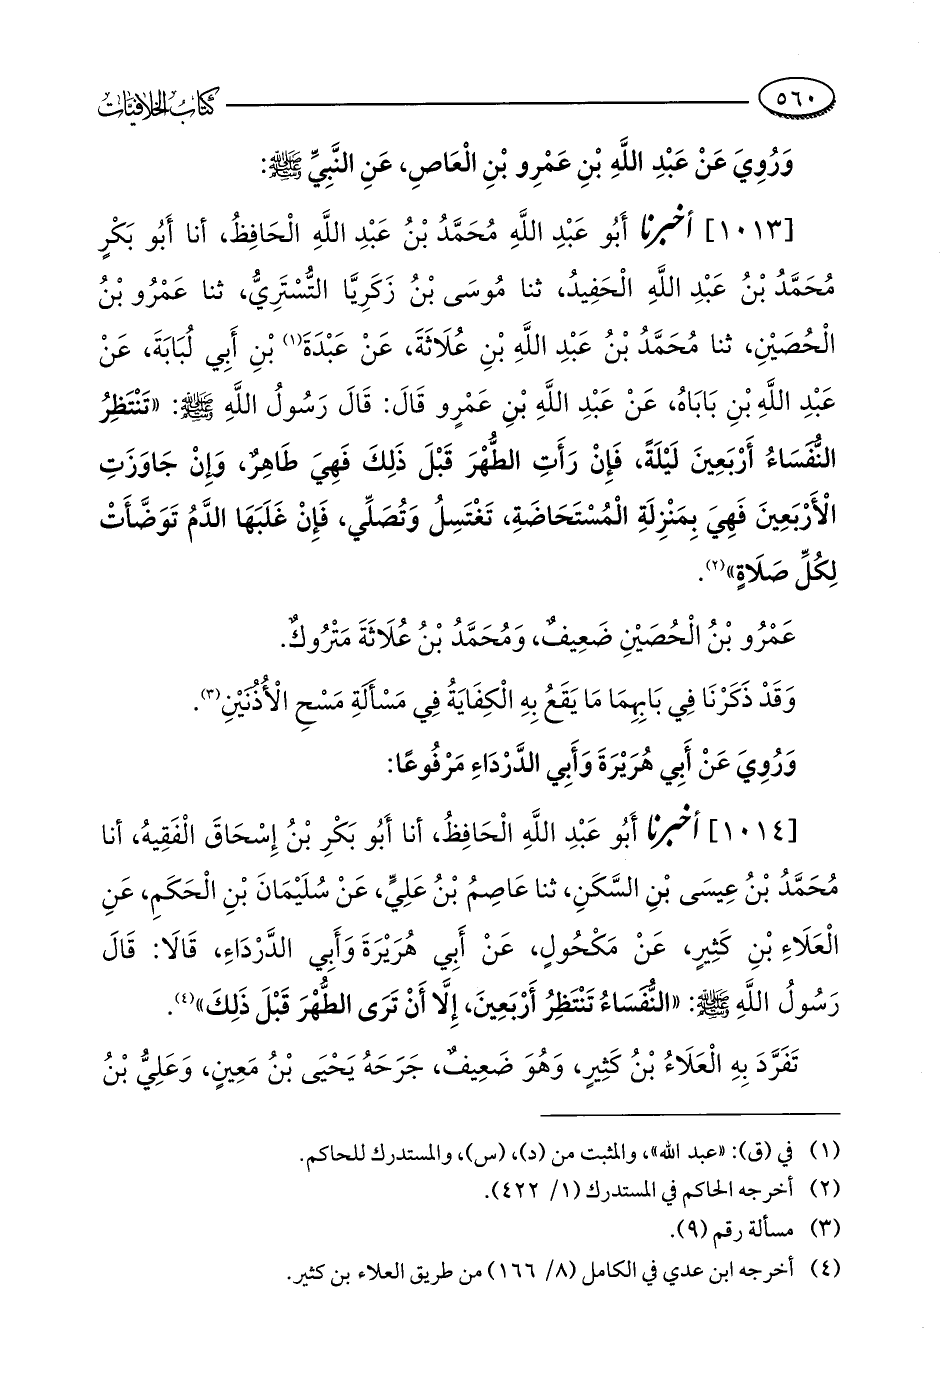 ٥٦٠ كتاب الخلافيات
وَرُوِيَ عَنْ عَبْدِ اللَّهِ بْنِ عَمْرِو بْنِ الْعَاصِ، عَنِ النَّبِيِّ ﷺ:
[١٠١٣] أخبرنا أَبُو عَبْدِ اللَّهِ مُحَمَّدُ بْنُ عَبْدِ اللَّهِ الْحَافِظُ، أنا أَبُو بَكْرٍ
مُحَمَّدُ بْنُ عَبْدِ اللَّهِ الْحَفِيدُ، ثنا مُوسَى بْنُ زَكَرِيَّا التُّسْتَرِيُّ، ثنا عَمْرُو بْنُ
الْحُصَيْنِ، ثنا مُحَمَّدُ بْنُ عَبْدِ اللَّهِ بْنِ عُلَاثَةَ، عَنْ عَبْدَةَ(١) بْنِ أَبِي لُبَابَةَ، عَنْ
عَبْدِ اللَّهِ بْنِ بَابَاهُ، عَنْ عَبْدِ اللَّهِ بْنِ عَمْرٍو قَالَ: قَالَ رَسُولُ اللَّهِ ﷺ: «تَنْتَظِرُ
النُّفَسَاءُ أَرْبَعِينَ لَيْلَةً، فَإِنْ رَأَتِ الطُّهْرَ قَبْلَ ذَلِكَ فَهِيَ طَاهِرٌ، وَإِنْ جَاوَزَتِ
الْأَرْبَعِينَ فَهِيَ بِمَنْزِلَةِ الْمُسْتَحَاضَةِ، تَغْتَسِلُ وَتُصَلِّي، فَإِنْ غَلَبَهَا الدَّمُ تَوَضَّأَتْ
لِكُلِّ صَلَاةٍ»(٢).
عَمْرُو بْنُ الْحُصَيْنِ ضَعِيفٌ، وَمُحَمَّدُ بْنُ عُلَاثَةَ مَتْرُوكٌ.
وَقَدْ ذَكَرْنَا فِي بَابِهِمَا مَا يَقَعُ بِهِ الْكِفَايَةُ فِي مَسْأَلَةِ مَسْحِ الْأُذُنَيْنِ(٣).
وَرُوِيَ عَنْ أَبِي هُرَيْرَةَ وَأَبِي الدَّرْدَاءِ مَرْفُوعًا:
[١٠١٤] أخبرنا أَبُو عَبْدِ اللَّهِ الْحَافِظُ، أنا أَبُو بَكْرِ بْنُ إِسْحَاقَ الْفَقِيهُ، أنا
مُحَمَّدُ بْنُ عِيسَى بْنِ السَّكَنِ، ثنا عَاصِمُ بْنُ عَلِيٍّ، عَنْ سُلَيْمَانَ بْنِ الْحَكَمِ، عَنِ
الْعَلَاءِ بْنِ كَثِيرٍ، عَنْ مَكْحُولٍ، عَنْ أَبِي هُرَيْرَةَ وَأَبِي الدَّرْدَاءِ، قَالَا: قَالَ
رَسُولُ اللَّهِ ﷺ: «النُّفَسَاءُ تَنْتَظِرُ أَرْبَعِينَ، إِلَّا أَنْ تَرَى الطُّهْرَ قَبْلَ ذَلِكَ»(٤).
تَفَرَّدَ بِهِ الْعَلَاءُ بْنُ كَثِيرٍ، وَهُوَ ضَعِيفٌ، جَرَحَهُ يَحْيَى بْنُ مَعِينٍ، وَعَلِيُّ بْنُ
(١) في (ق): «عبد الله»، والمثبت من (د)، (س)، والمستدرك للحاكم.
(٢) أخرجه الحاكم في المستدرك (١/ ٤٢٢).
(٣) مسألة رقم (٩).
(٤) أخرجه ابن عدي في الكامل (٨/ ١٦٦) من طريق العلاء بن كثير.